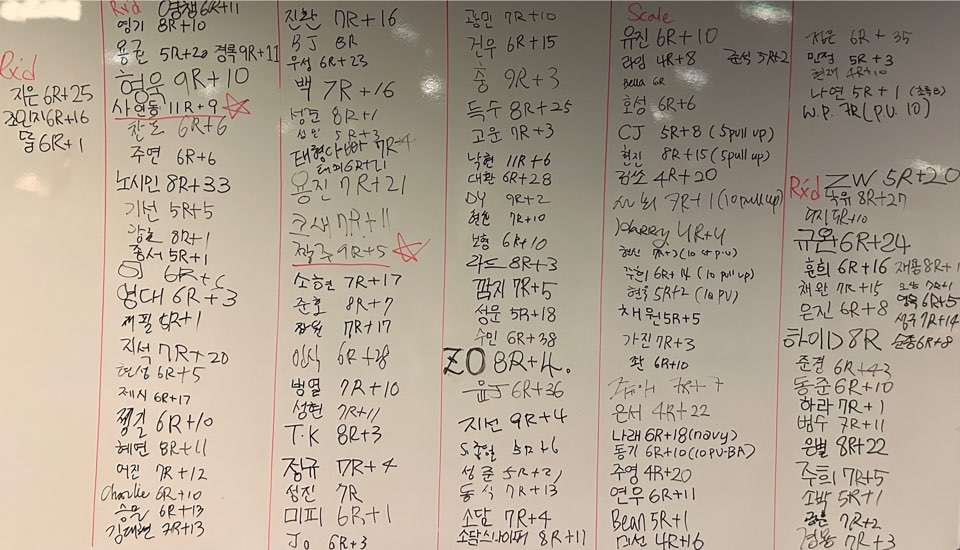 Rx'd
지은 6R+25
조민지 6R+16
둘 6R+1
Rx'd 영쟁 6R+11
영기 8R+10
용근 5R+20 경록 9R+11
형욱 9R+10
사연동 11R+9
찬호 6R+6
주연 6R+6
노시인 8R+33
기선 5R+5
광호 8R+1
홍서 5R+1
영대 6R+3
재필 5R+1
지석 7R+20
현성 6R+5
제시 6R+17
6R+10
혜연 8R+11
어진 7R+12
Charlie 6R+10
승물 6R+13
김태현 7R+13
진환 7R+16
BJ 8R
우성 6R+23
백 7R+16
성도 8R+1
성민 5R+3
태형아빠 7R+4
6R+21
용진 7R+21
7R+11
짱구 9R+5
소현 7R+17
준호 8R+7
7R+17
인식 6R+28
병열 7R+10
성현 7R+11
T.K 8R+3
정규 7R+4
성진 7R
미피 6R+1
Jo 6R+3
광민 7R+10
건우 6R+15
홍 9R+3
득수 8R+25
고운 7R+3
낙현 11R+6
대환 6R+28
DY 9R+2
현찬 7R+10
보형 6R+10
라드 8R+3
깜지 7R+5
성문 5R+18
수민 6R+38
ZO 8R+4.
윤J 6R+36
지선 9R+4
5R+6
성준 5R+21
동식 7R+13
소담 7R+4
소담스나이퍼 8R+17
Scale
유진 6R+10
라임 4R+8 준석 5R+2
Bella 6R
효성 6R+6
CJ 5R+8 (5pull up)
현진 8R+15 (5pull up)
김쏘 4R+20
7R+1 (10pull up)
Harry 4R+4
주희 6R+14 (10 pull up)
현욱 5R+2 (10 PU)
채원 5R+5
가진 7R+3
6R+10
7R+7
은서 4R+22
나래 6R+18 (navy)
동기 6R+10 (10PU-BA)
주영 4R+20
연우 6R+11
Bean 5R+1
미선 4R+16
지은 6R+35
민정 5R+3
현재 4R+10
나연 5R+1
W.P. 7R (P.U. 10)
Rx'd ZW 5R+20
8R+27
7R+10
규온 6R+24
훈희 6R+16 재용 8R+1
채완 7R+15 7R+1
은진 6R+8 영욱 6R+5
성구 7R+14
하이D 8R 순종 6R+8
준경 6R+43
동준 6R+10
하라 7R+1
범수 7R+11
은별 8R+22
주희 7R+5
소박 5R+1
7R+2
경용 7R+3